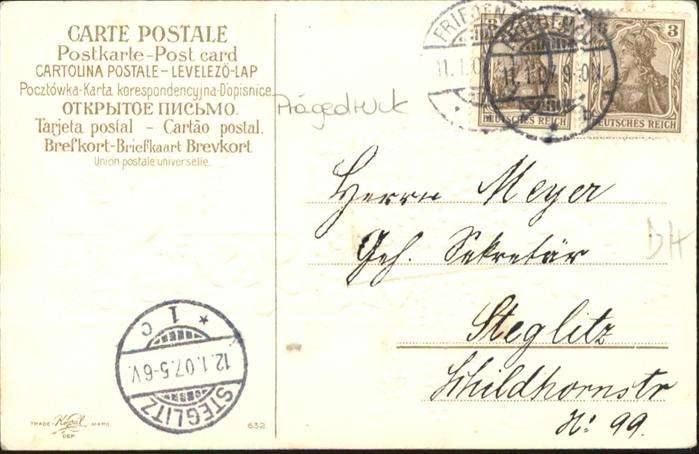 CARTE POSTALE
Postkarte-Post card
CARTOLINA POSTALE-LEVELEZÖ-LAP
Pocztówka-Karta korespondencyjna-Dopisnice
ОТКРЫТОЕ ПИСЬМО.
Tarjeta postal - Cartão postal.
Brefkort-Briefkaart Brevkort
Union postale universelle.
Prägedruck
FRIEDENAU
11.1.07. 9-10N
3
DEUTSCHES REICH
3
DEUTSCHES REICH
Herrn Meyer
Geh. Sekretär
BH
Steglitz
Schildhornstr
No: 99.
* 1 c
12.1.07.5-6V.
STEGLITZ
TRADE- MARC.
DEP.
632